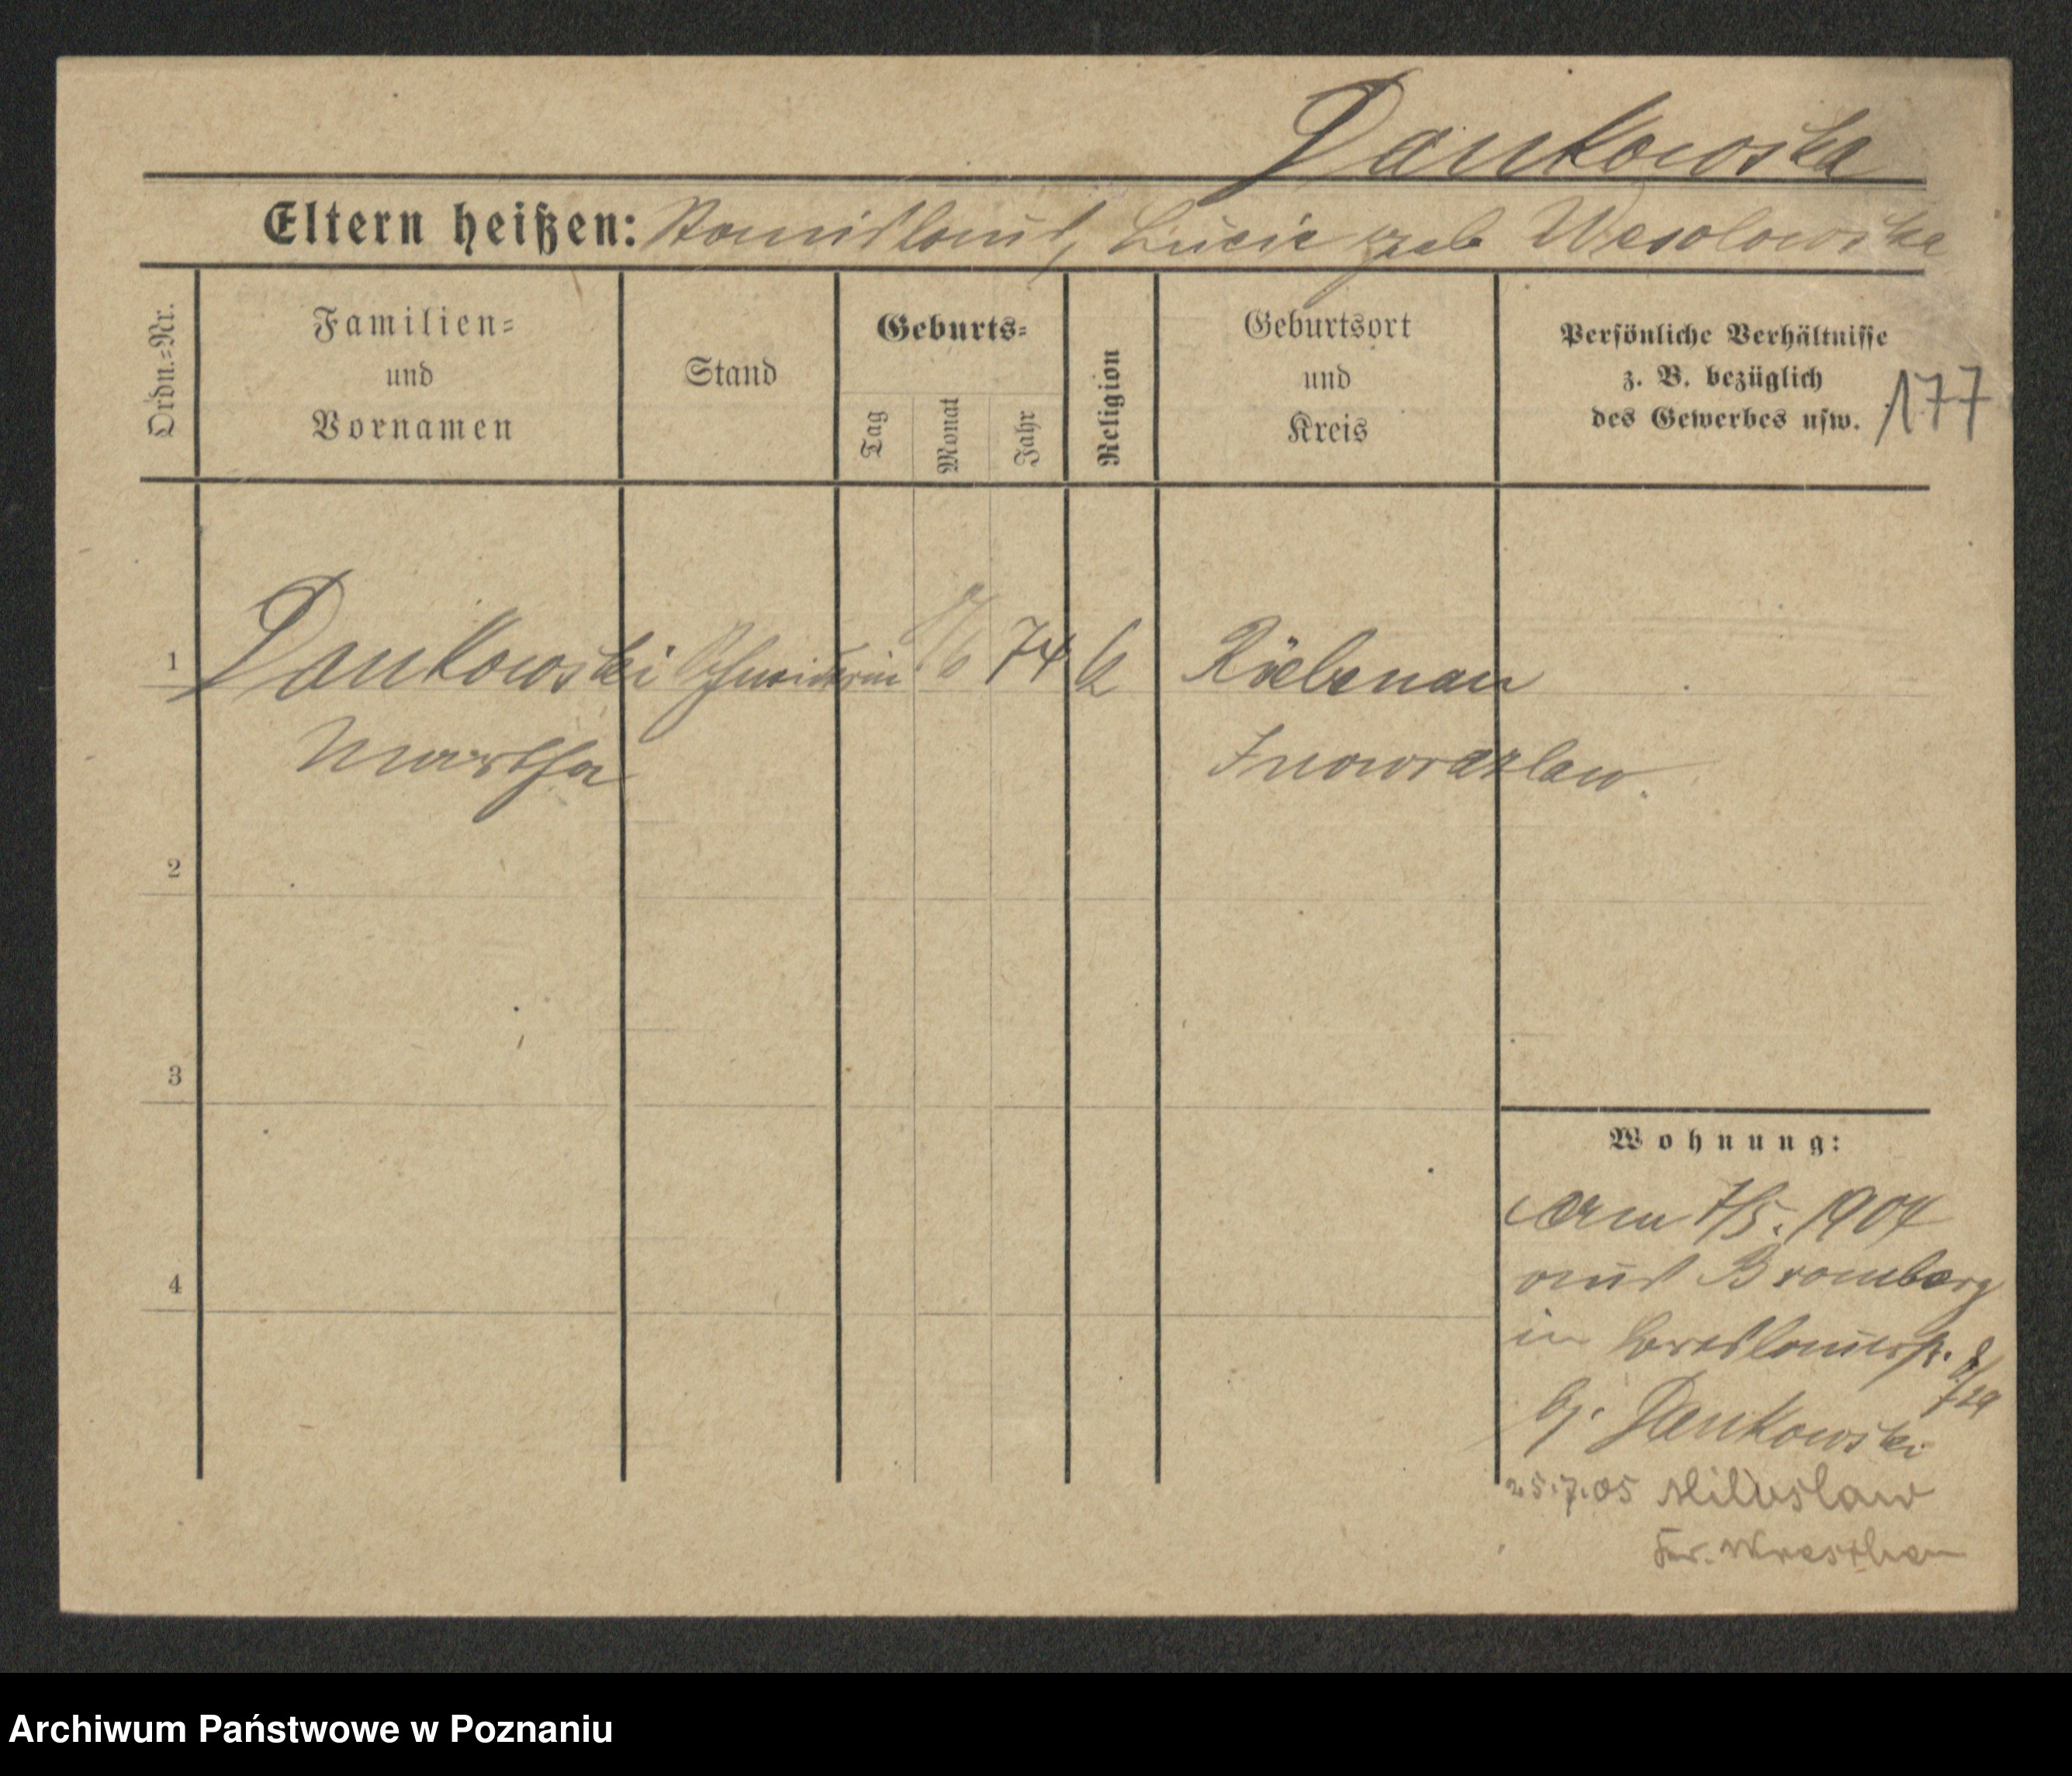 Dankowska
Eltern heißen: Stanislaus, Lucie geb Wesolowska
Ordn.-Nr.
Familien-
und
Vornamen
Stand
Geburts-
Tag
Monat
Jahr
Religion
Geburtsort
und
Kreis
Persönliche Verhältnisse
z. B. bezüglich
des Gewerbes usw.
177
1 Dankowski Schneiderin 74 k Rübenau
Martha Inowrazlaw.
2
3
4
Wohnung:
Am 7/5. 1904
aus Bromberg
in Breslauerstr.
bj. Dankowski
25.7.05 Miloslaw
Kr. Wreschen
Archiwum Państwowe w Poznaniu